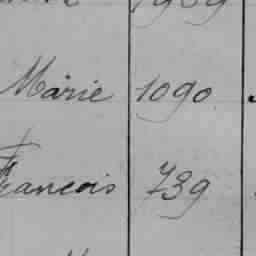 Marie 1090
Francois 739